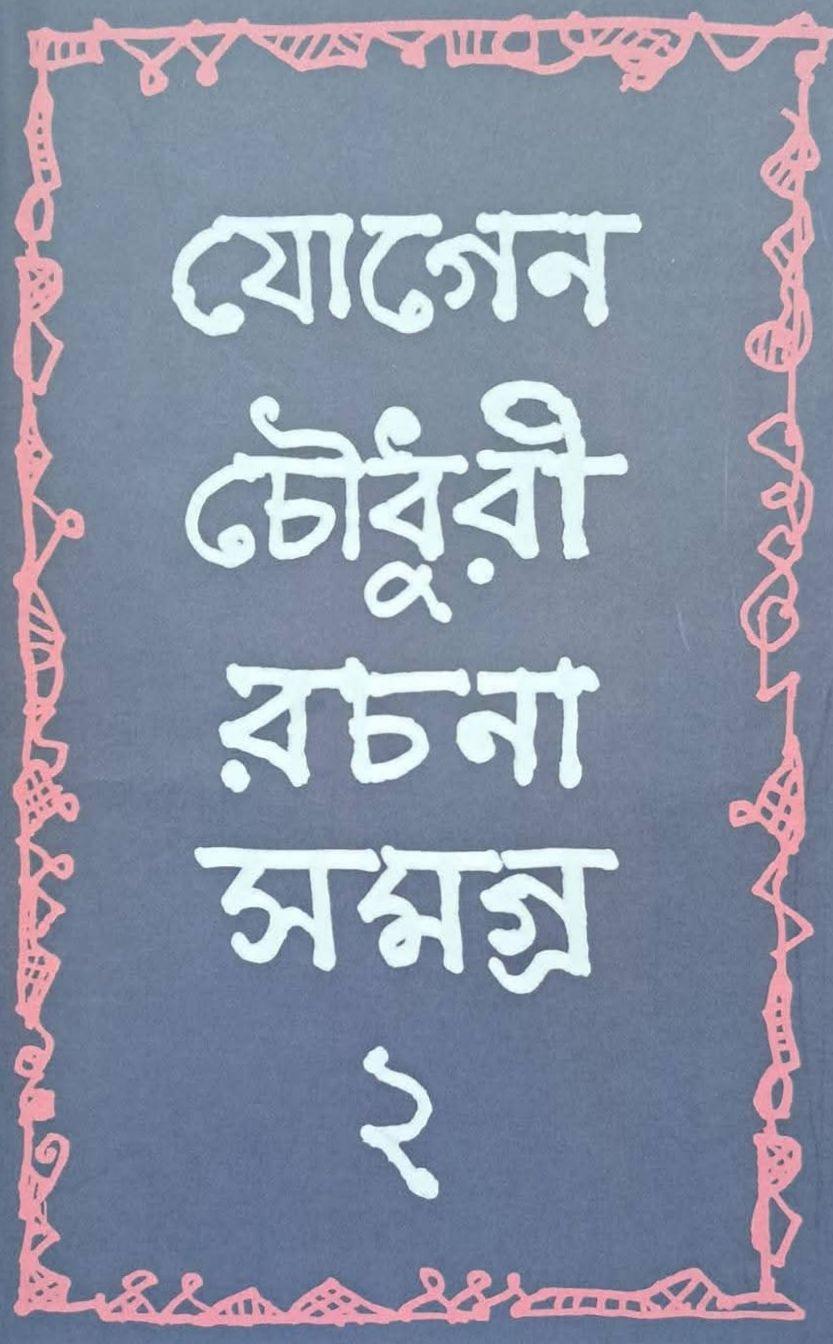 যোগেন
চৌধুরী
রচনা
সমগ্র
২